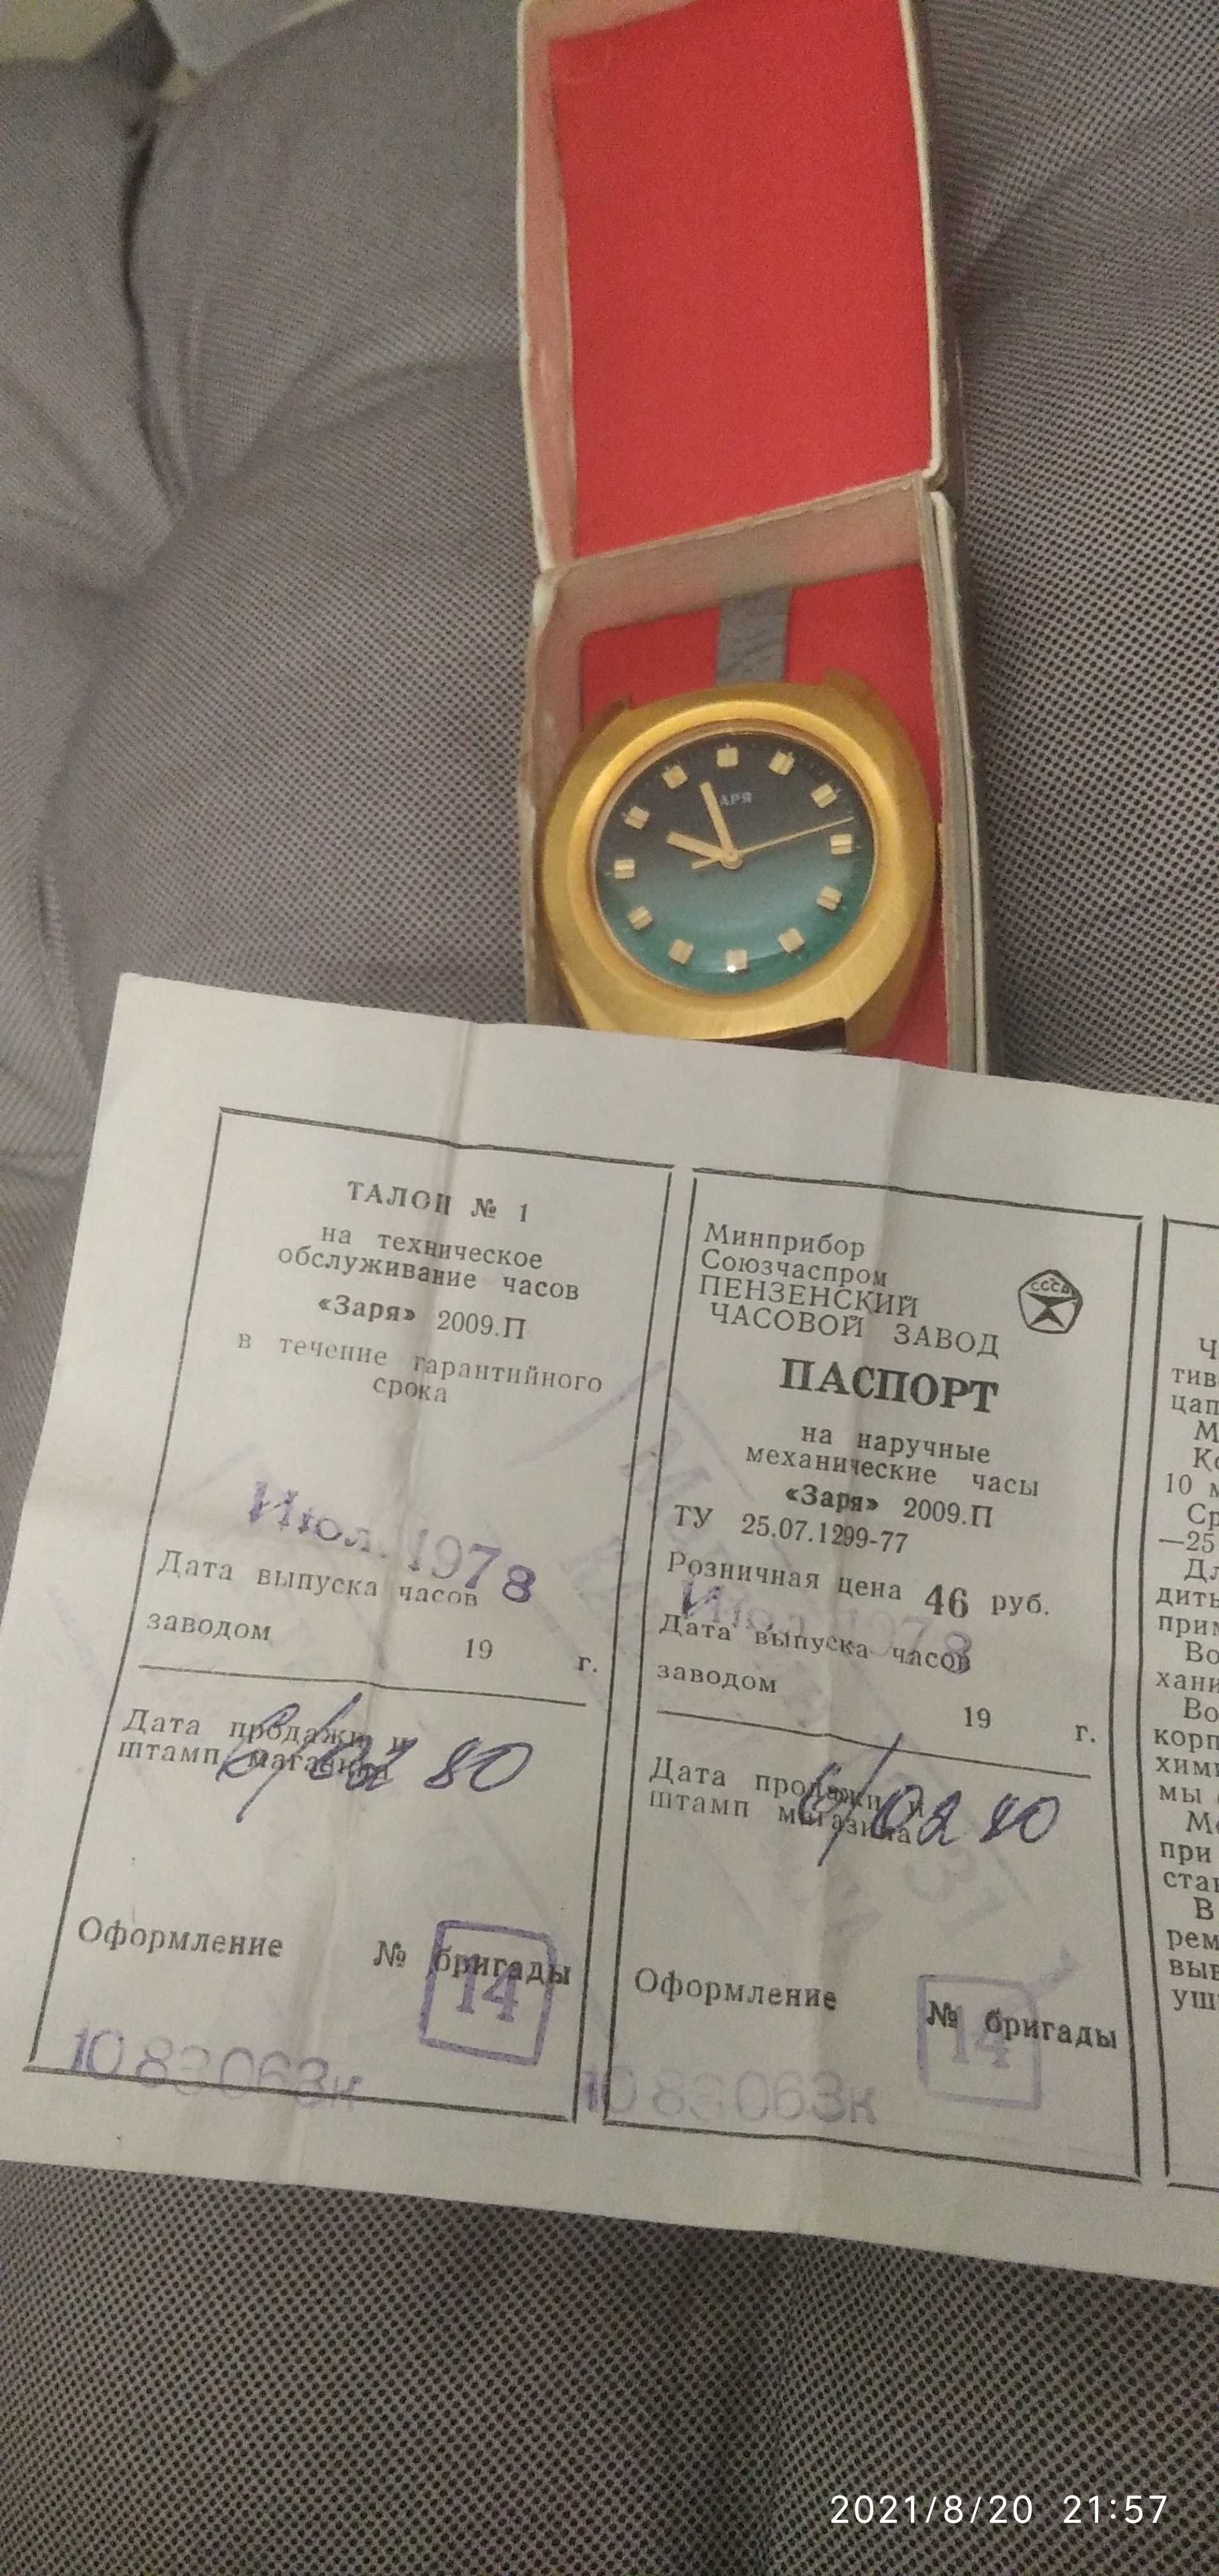 АРЯ
ТАЛОН № 1
на техническое
обслуживание часов
«Заря» 2009.П
в течение гарантийного
срока
Июл. 1978
Дата выпуска часов
заводом 19 г.
Дата продажи и
штамп магазина
6/02 80
Оформление № бригады
14
1083063к
Минприбор
Союзчаспром
ПЕНЗЕНСКИЙ
ЧАСОВОЙ ЗАВОД
СССР
ПАСПОРТ
на наручные
механические часы
«Заря» 2009.П
ТУ 25.07.1299-77
Розничная цена 46 руб.
Июл. 1978
Дата выпуска часов
заводом 19 г.
Дата продажи и
штамп магазина
6/02 80
Оформление № бригады
14
1083063к
Ч
тив
цап
М
Ко
10 м
Ср
—25
Дл
дить
прим
Во
хани
Во
корп
хими
мы
Мо
при
стан
В
рем
выв
уш
2021/8/20 21:57